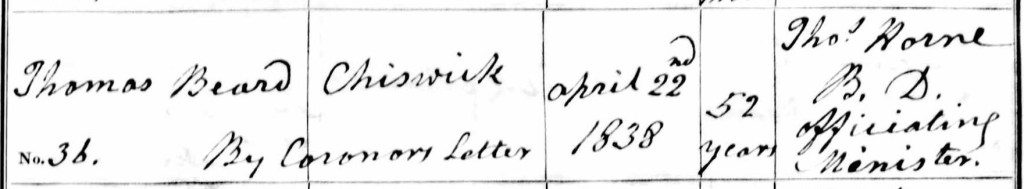 Thomas Beard Chiswick April 22nd 52 Thos Horne
No. 36. By Coronors Letter 1838 years B. D.
officiating
Minister.